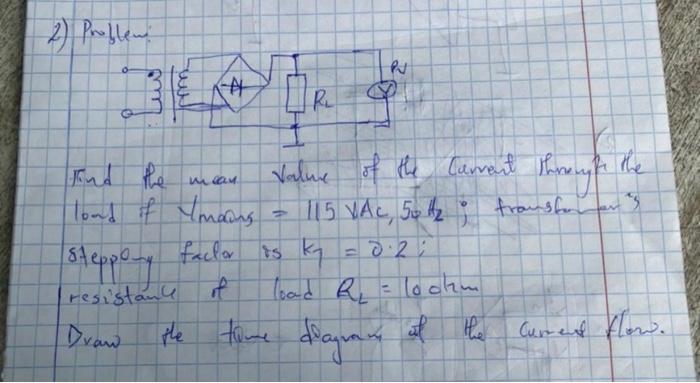 2) Problem:
PV
RL
V
Find the mean value of the current through the
load if Vmains = 115 VAC, 50 Hz ; transformer's
stepping factor is KT = 0.2 ;
resistance of load RL = 10 ohm
Draw the time diagram of the current flow.